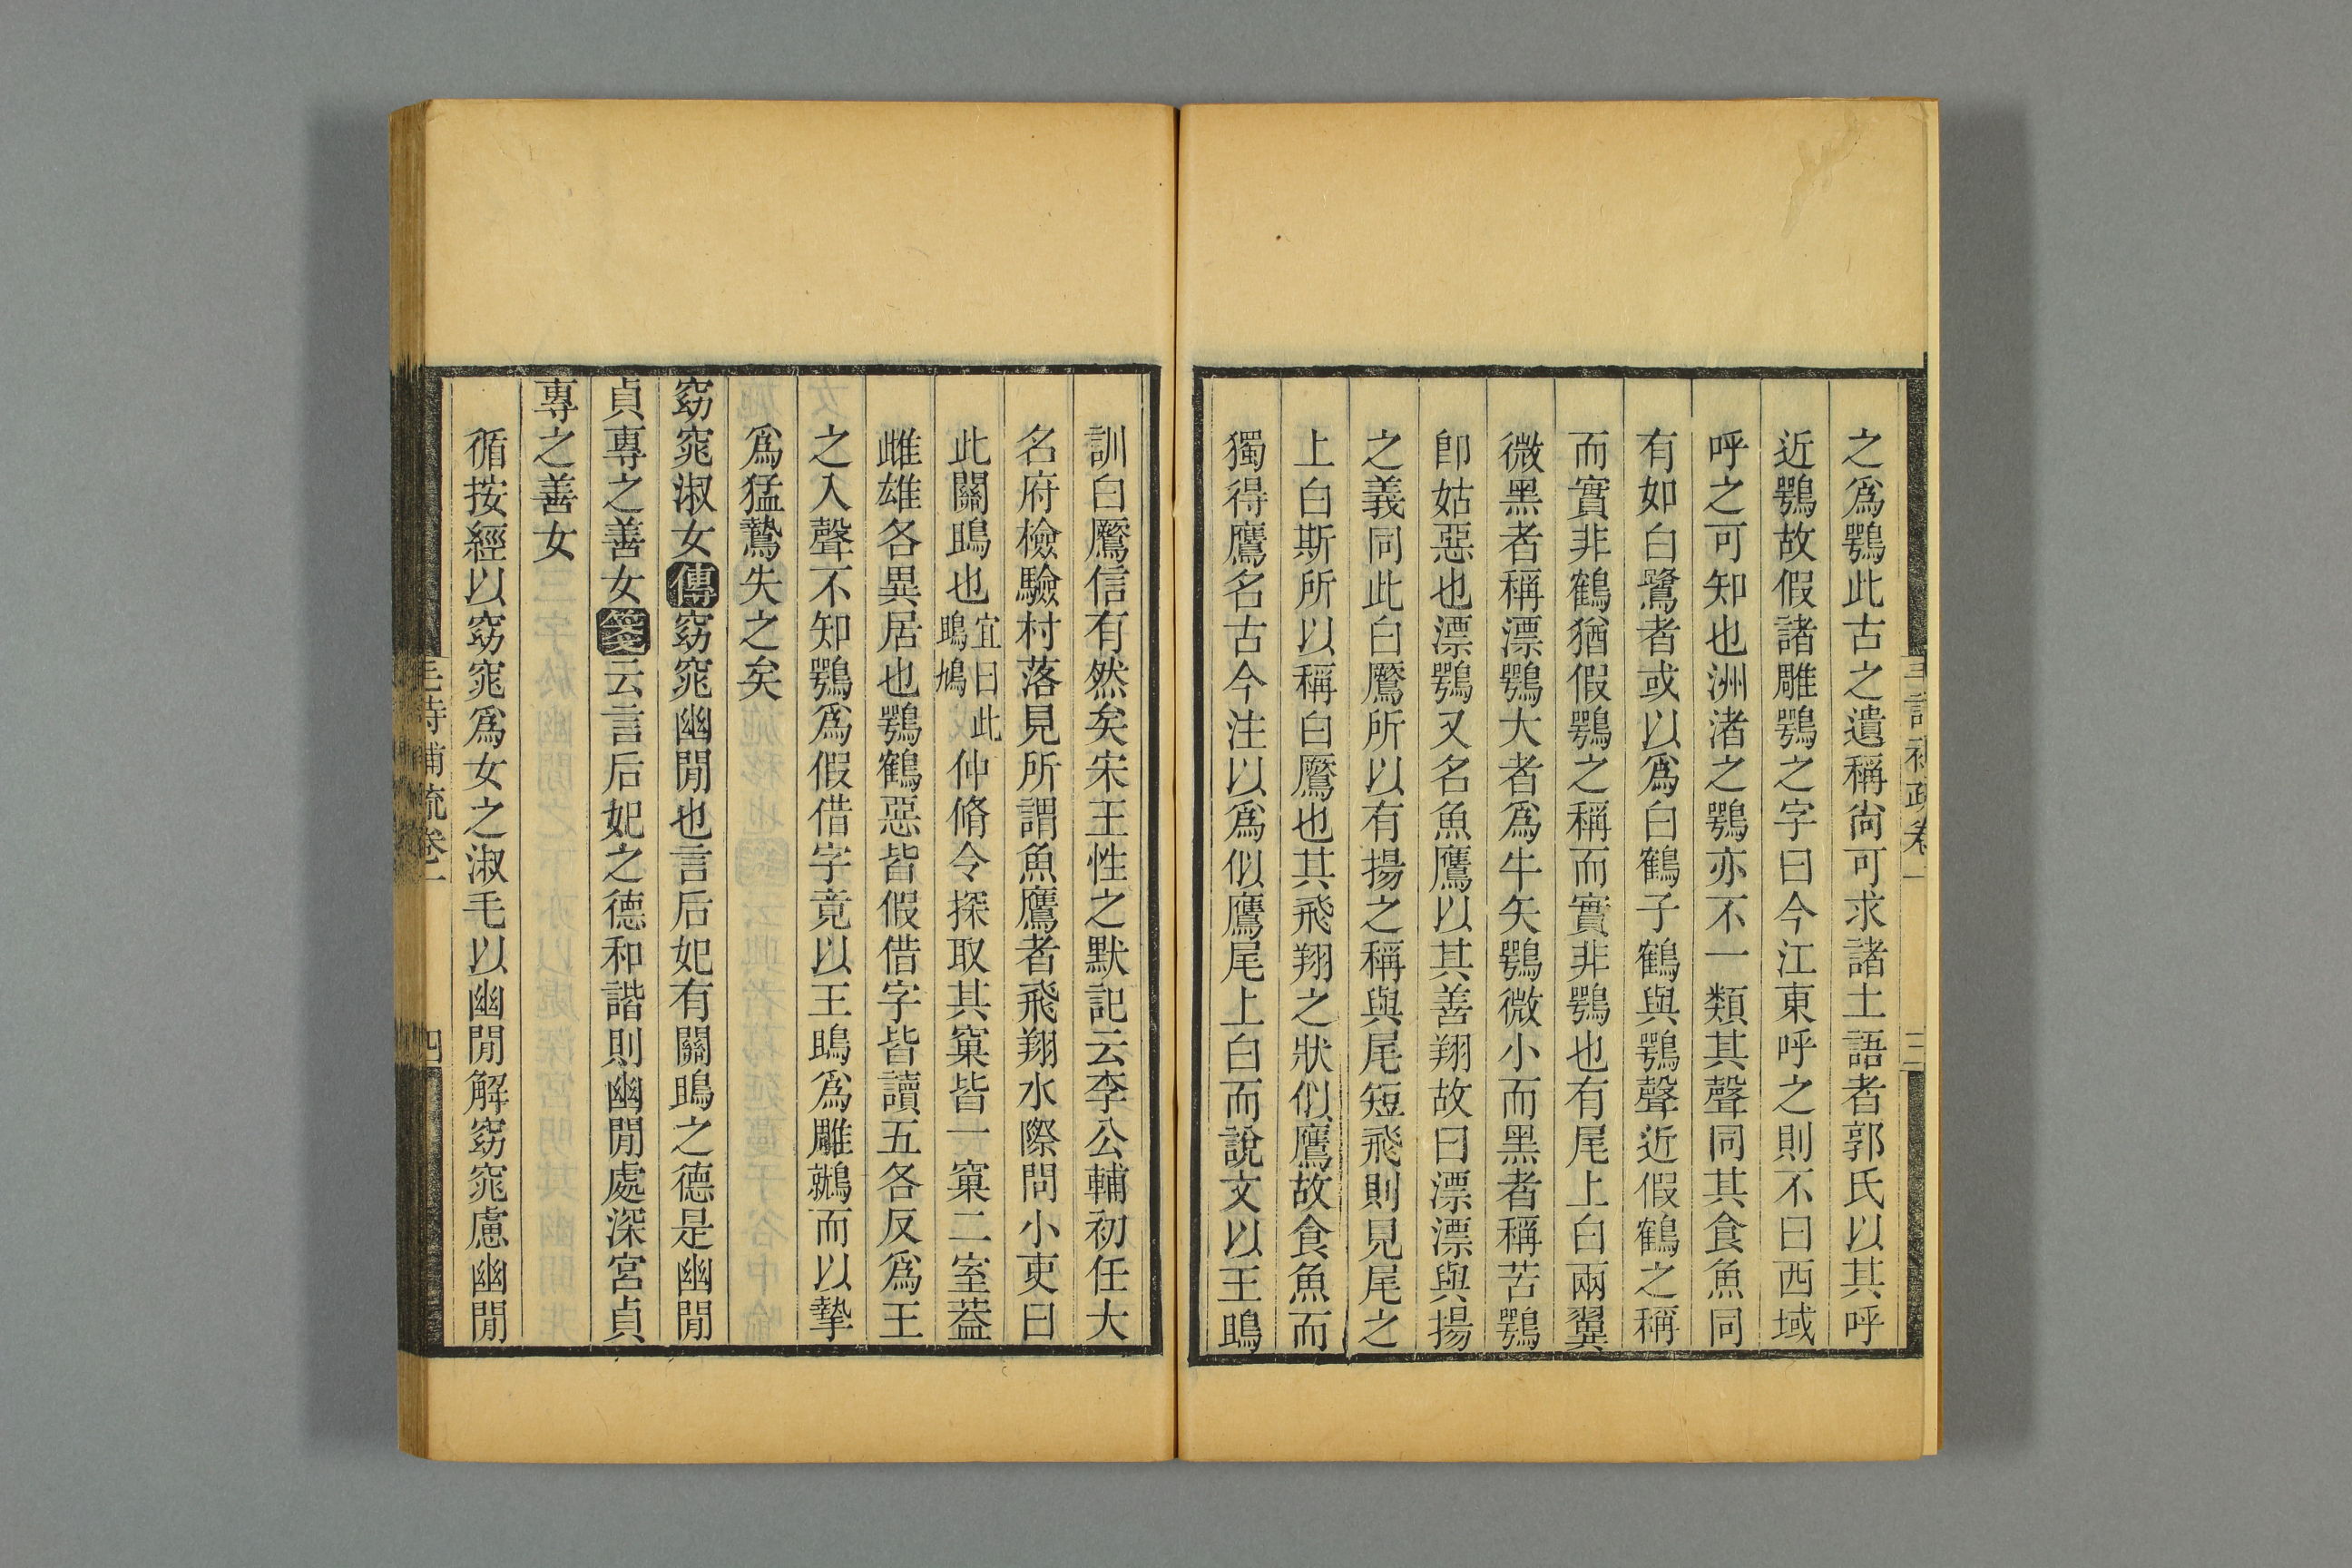 之爲鶚此古之遺稱尙可求諸土語者郭氏以其呼
近鶚故假諸雕鶚之字曰今江東呼之則不曰西域
呼之可知也洲渚之鶚亦不一類其聲同其食魚同
有如白鷺者或以爲白鶴子鶴與鶚聲近假鶴之稱
而實非鶴猶假鶚之稱而實非鶚也有尾上白兩翼
微黑者稱漂鶚大者爲牛矢鶚微小而黑者稱苦鶚
卽姑惡也漂鶚又名魚鷹以其善翔故曰漂漂與揚
之義同此白鷢所以有揚之稱與尾短飛則見尾之
上白斯所以稱白鷢也其飛翔之狀似鷹故食魚而
獨得鷹名古今注以爲似鷹尾上白而說文以王鴡
訓白鷢信有然矣宋王性之默記云李公輔初任大
名府檢驗村落見所謂魚鷹者飛翔水際問小吏曰
此關鴡也宜曰此鴡鳩仲脩令探取其窠皆一窠二室葢
雌雄各異居也鶚鶴惡皆假借字皆讀五各反爲王
之入聲不知鶚爲假借字竟以王鴡爲雕鷻而以摯
爲猛鷙失之矣
窈窕淑女傳窈窕幽閒也言后妃有關鴡之德是幽閒
貞專之善女箋云言后妃之德和諧則幽閒處深宮貞
專之善女
循按經以窈窕爲女之淑毛以幽閒解窈窕慮幽閒
毛詩補疏卷一
四